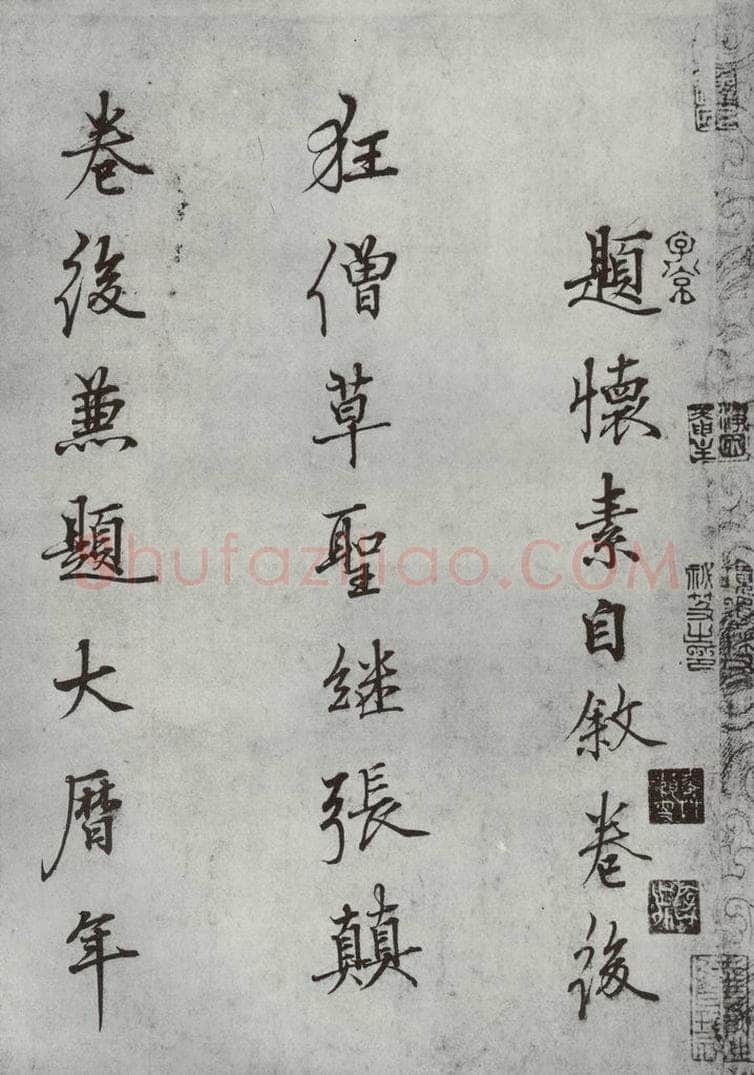 題懷素自敘卷後
狂僧草聖継張顛
卷後兼題大曆年
shufaziliao.COM
子京